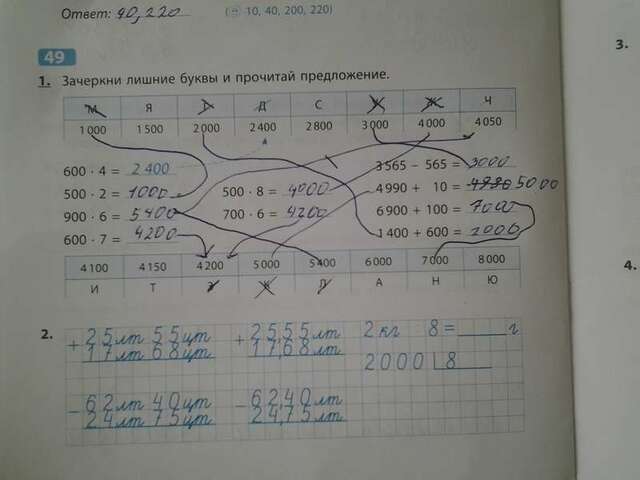 Ответ: 40,220 (10, 40, 200, 220)
49
3.
1. Зачеркни лишние буквы и прочитай предложение.
М Я А Д С У Ж Ч
1 000 1 500 2 000 2 400 2 800 3 000 4 000 4 050
600 · 4 = 2 400 3 565 – 565 = 3000
500 · 2 = 1000 500 · 8 = 4000 4 990 + 10 = 4990 5000
900 · 6 = 5400 700 · 6 = 4200 6 900 + 100 = 7000
600 · 7 = 4200 1 400 + 600 = 2000
4 100 4 150 4 200 5 000 5 400 6 000 7 000 8 000
И Т А Н Ю
4.
2. + 25 лт 55 цт + 25,55 лт 2 кг 8 = г
17 лт 68 цт 17,68 лт 2000 8
– 62 лт 40 цт – 62,40 лт
24 лт 75 цт 24,75 лт